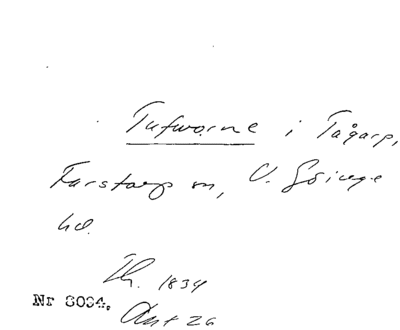 Tufvorne i Tågarp,
Farstorp sn, V. Göinge
hd.
Th. 1834
Nr 8034.